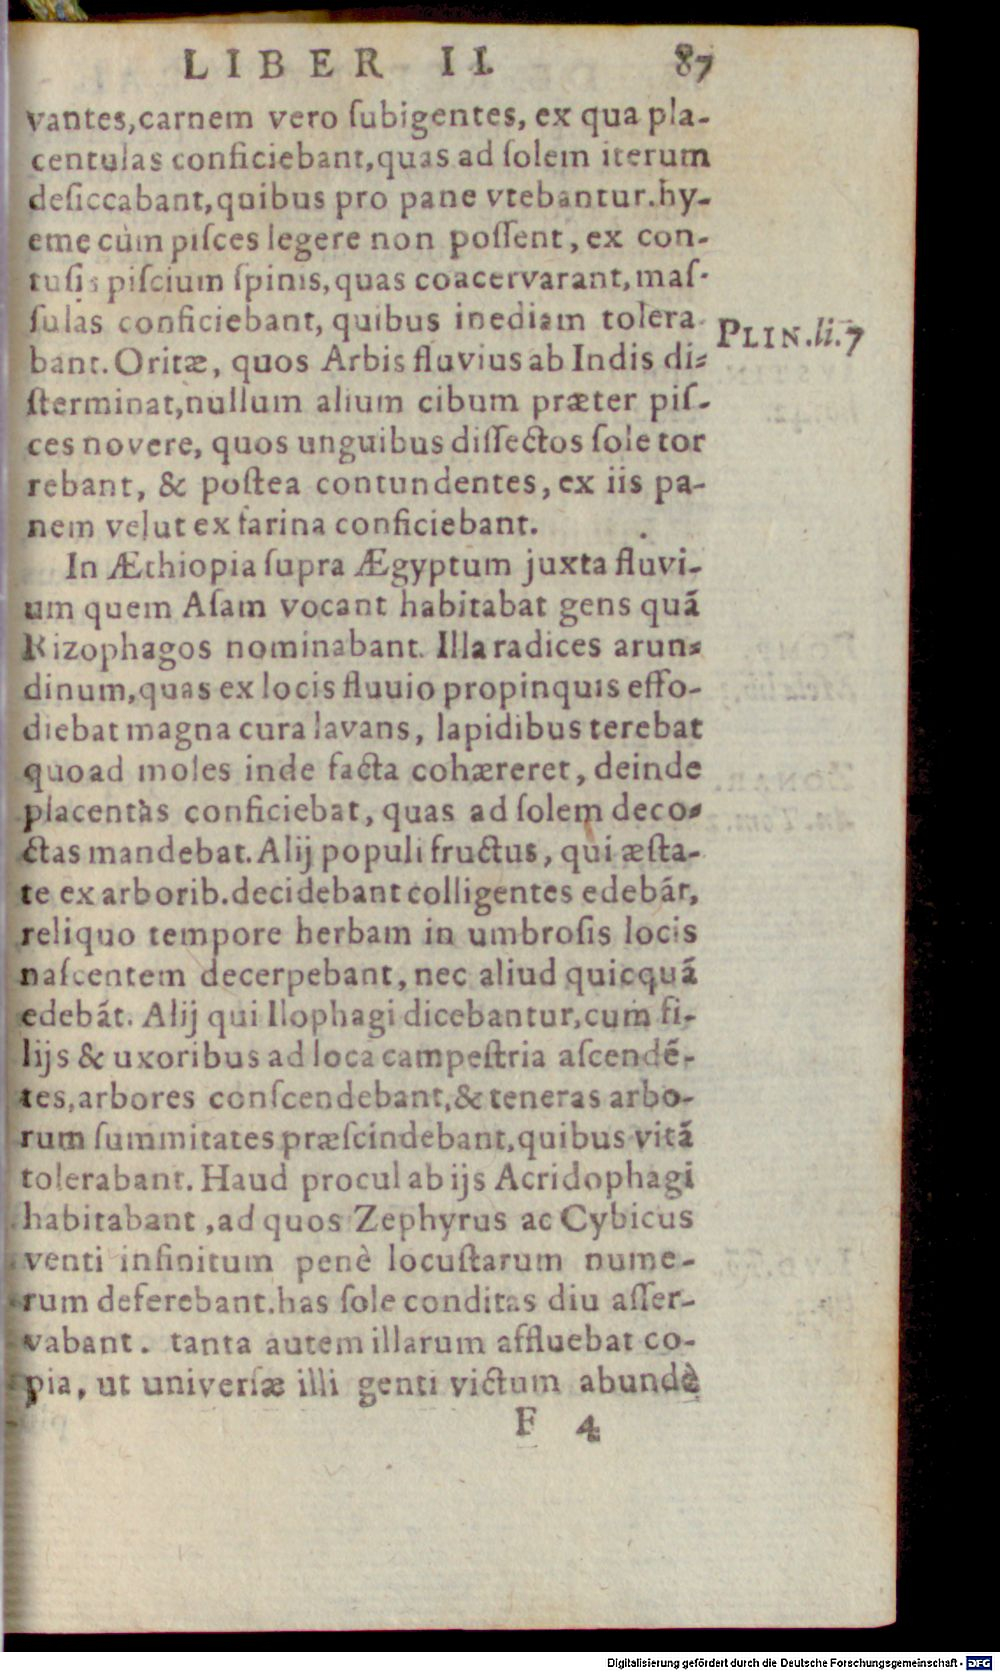 LIBER II. 87
vantes,carnem vero ſubigentes, ex qua pla-
centulas conficiebant,quas ad ſolem iterum
deſiccabant,quibus pro pane vtebantur.hy-
eme cùm piſces legere non poſſent, ex con-
tuſis piſcium ſpinis,quas coacervarant,maſ-
ſulas conficiebant, quibus inediam tolera-
bant. Oritæ, quos Arbis fluvius ab Indis di-
ſterminat,nullum alium cibum præter piſ-
ces novere, quos unguibus diſſectos ſole tor
rebant, & poſtea contundentes, ex iis pa-
nem velut ex farina conficiebant.
PLIN.li.7
In Æthiopia ſupra Ægyptum juxta fluvi-
um quem Aſam vocant habitabat gens quã
Rizophagos nominabant. Illa radices arun-
dinum,quas ex locis fluuio propinquis effo-
diebat magna cura lavans, lapidibus terebat
quoad moles inde facta cohæreret, deinde
placentas conficiebat, quas ad ſolem deco-
ctas mandebat. Alij populi fructus, qui æſta-
te ex arborib.decidebant colligentes edebãt,
reliquo tempore herbam in umbroſis locis
naſcentem decerpebant, nec aliud quicquã
edebãt. Alij qui Ilophagi dicebantur,cum fi-
lijs & uxoribus ad loca campeſtria aſcendẽ-
tes,arbores conſcendebant,& teneras arbo-
rum ſummitates præſcindebant,quibus vitã
tolerabant. Haud procul ab ijs Acridophagi
habitabant ,ad quos Zephyrus ac Cybicus
venti infinitum penè locuſtarum nume-
rum deferebant.has ſole conditas diu aſſer-
vabant. tanta autem illarum affluebat co-
pia, ut univerſæ illi genti victum abundè
F 4
Digitalisierung gefördert durch die Deutsche Forschungsgemeinschaft - DFG